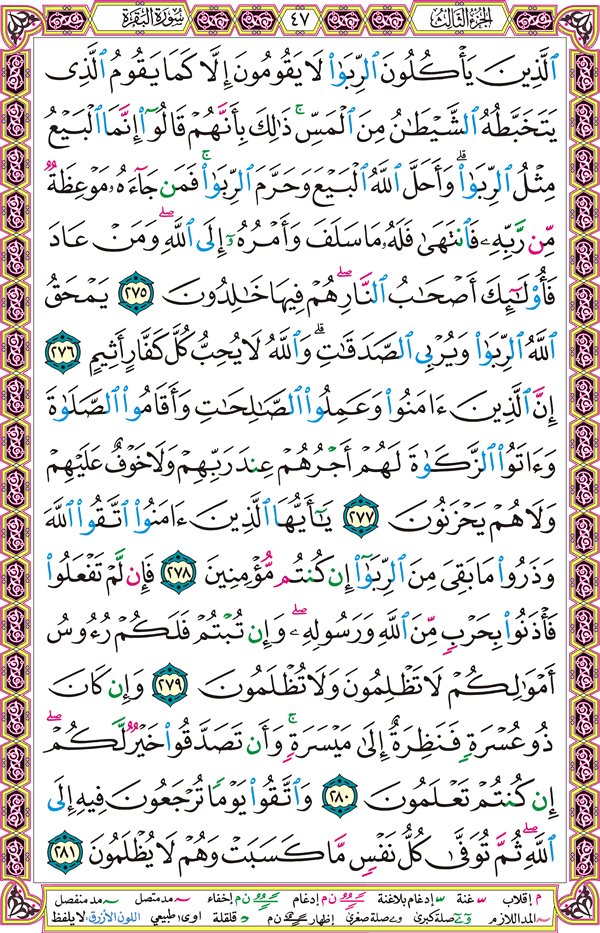 الجزء الثالث
٤٧
سورة البقرة
ٱلَّذِينَ يَأۡكُلُونَ ٱلرِّبَوٰاْ لَا يَقُومُونَ إِلَّا كَمَا يَقُومُ ٱلَّذِي
يَتَخَبَّطُهُ ٱلشَّيۡطَٰنُ مِنَ ٱلۡمَسِّۚ ذَٰلِكَ بِأَنَّهُمۡ قَالُوٓاْ إِنَّمَا ٱلۡبَيۡعُ
مِثۡلُ ٱلرِّبَوٰاْۗ وَأَحَلَّ ٱللَّهُ ٱلۡبَيۡعَ وَحَرَّمَ ٱلرِّبَوٰاْۚ فَمَن جَآءَهُۥ مَوۡعِظَةٞ
مِّن رَّبِّهِۦ فَٱنتَهَىٰ فَلَهُۥ مَا سَلَفَ وَأَمۡرُهُۥٓ إِلَى ٱللَّهِۖ وَمَنۡ عَادَ
فَأُوْلَٰٓئِكَ أَصۡحَٰبُ ٱلنَّارِۖ هُمۡ فِيهَا خَٰلِدُونَ ٢٧٥ يَمۡحَقُ
ٱللَّهُ ٱلرِّبَوٰاْ وَيُرۡبِي ٱلصَّدَقَٰتِۗ وَٱللَّهُ لَا يُحِبُّ كُلَّ كَفَّارٍ أَثِيمٍ ٢٧٦
إِنَّ ٱلَّذِينَ ءَامَنُواْ وَعَمِلُواْ ٱلصَّٰلِحَٰتِ وَأَقَامُواْ ٱلصَّلَوٰةَ
وَءَاتَوُاْ ٱلزَّكَوٰةَ لَهُمۡ أَجۡرُهُمۡ عِندَ رَبِّهِمۡ وَلَا خَوۡفٌ عَلَيۡهِمۡ
وَلَا هُمۡ يَحۡزَنُونَ ٢٧٧ يَٰٓأَيُّهَا ٱلَّذِينَ ءَامَنُواْ ٱتَّقُواْ ٱللَّهَ
وَذَرُواْ مَا بَقِيَ مِنَ ٱلرِّبَوٰٓاْ إِن كُنتُم مُّؤۡمِنِينَ ٢٧٨ فَإِن لَّمۡ تَفۡعَلُواْ
فَأۡذَنُواْ بِحَرۡبٖ مِّنَ ٱللَّهِ وَرَسُولِهِۦۖ وَإِن تُبۡتُمۡ فَلَكُمۡ رُءُوسُ
أَمۡوَٰلِكُمۡ لَا تَظۡلِمُونَ وَلَا تُظۡلَمُونَ ٢٧٩ وَإِن كَانَ
ذُو عُسۡرَةٖ فَنَظِرَةٌ إِلَىٰ مَيۡسَرَةٖۚ وَأَن تَصَدَّقُواْ خَيۡرٞ لَّكُمۡۖ
إِن كُنتُمۡ تَعۡلَمُونَ ٢٨٠ وَٱتَّقُواْ يَوۡمٗا تُرۡجَعُونَ فِيهِ إِلَى
ٱللَّهِۖ ثُمَّ تُوَفَّىٰ كُلُّ نَفۡسٖ مَّا كَسَبَتۡ وَهُمۡ لَا يُظۡلَمُونَ ٢٨١
م إقلاب غنة إدغام بلاغنة ن م إدغام ن م إخفاء مد متصل مد منفصل
المد اللازم صلة كبرى صلة صغرى إظهار ن م قلقلة اوى طبيعي اللون الأزرق: لا يلفظ